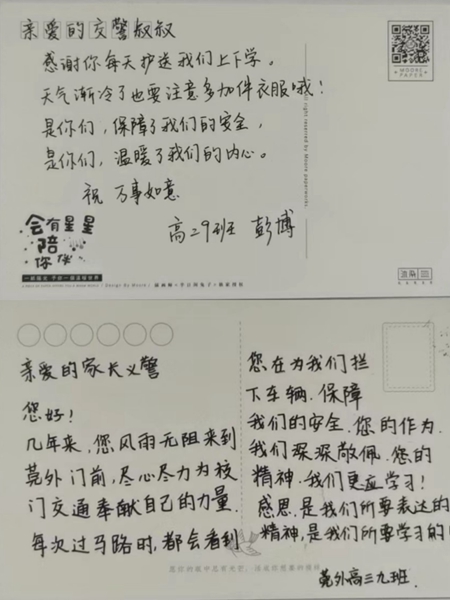 亲爱的交警叔叔
感谢你每天护送我们上下学。
天气渐冷了也要注意多加件衣服哦！
是你们，保障了我们的安全，
是你们，温暖了我们的内心。
祝 万事如意
高二9班 彭博
会有星星
陪
你
MOORE
PAPER
亲爱的家长义警
您好！
几年来，您风雨无阻来到
莞外门前，尽心尽力为校
门交通奉献自己的力量.
每次过马路时，都会看到
您在为我们拦
下车辆.保障
我们的安全.您的作为.
我们深深敬佩.您的
精神.我们更应学习!
感恩.是我们所要表达的
精神,是我们所要学习的
莞外高三九班.